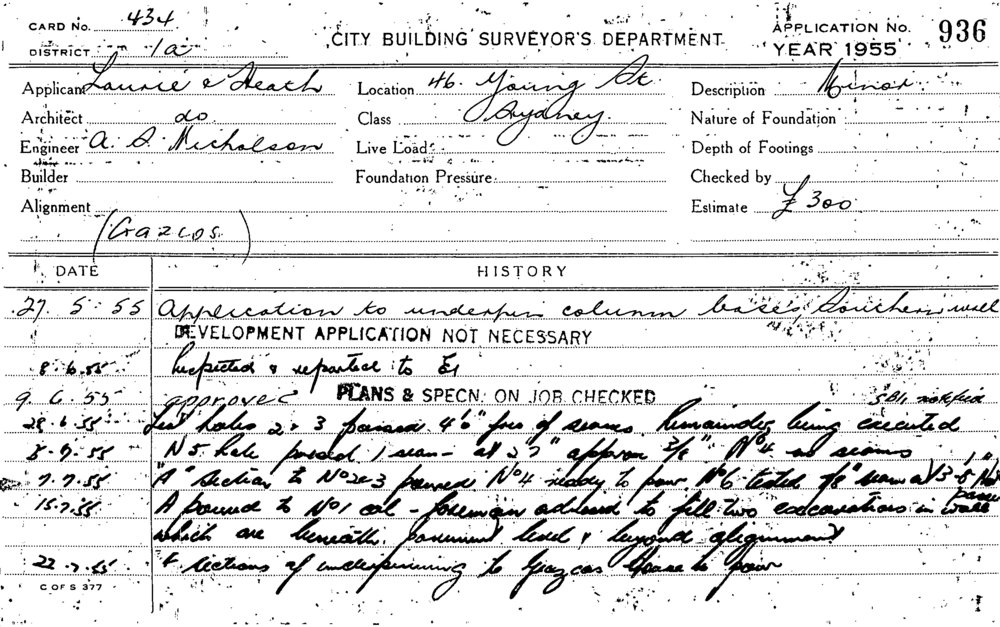 CARD No. 434
DISTRICT 1a
CITY BUILDING SURVEYOR'S DEPARTMENT
APPLICATION No. 936
YEAR 1955
Applicant Laurie & Heath
Location 46 Young St
Description Minor
Architect do
Class Sydney
Nature of Foundation
Engineer A. S. Nicholson
Live Load
Depth of Footings
Builder
Foundation Pressure
Checked by
Alignment
Estimate £300
(Gazcos)
DATE HISTORY
27. 5. 55 Application to underpin column bases, Southern wall
DEVELOPMENT APPLICATION NOT NECESSARY
8.6.55 Inspected & reported to
9. 6. 55 approved PLANS & SPECN. ON JOB CHECKED notified
28.6.55 Test holes 2 & 3 passed 4'6" free of seams. Remainder being executed
N 5 hole passed 1 seam at approx No 4 no seams
7.7.55 "A" section to No 2 & 3 poured No 4 ready to pour No 6 tested seam at
15.7.55 A poured to No 1 col - foreman advised to fill two excavations in
which are beneath pavement level & beyond alignment
22.7.55 sections of underpinning to Gazcos House to pour
C OF S 377